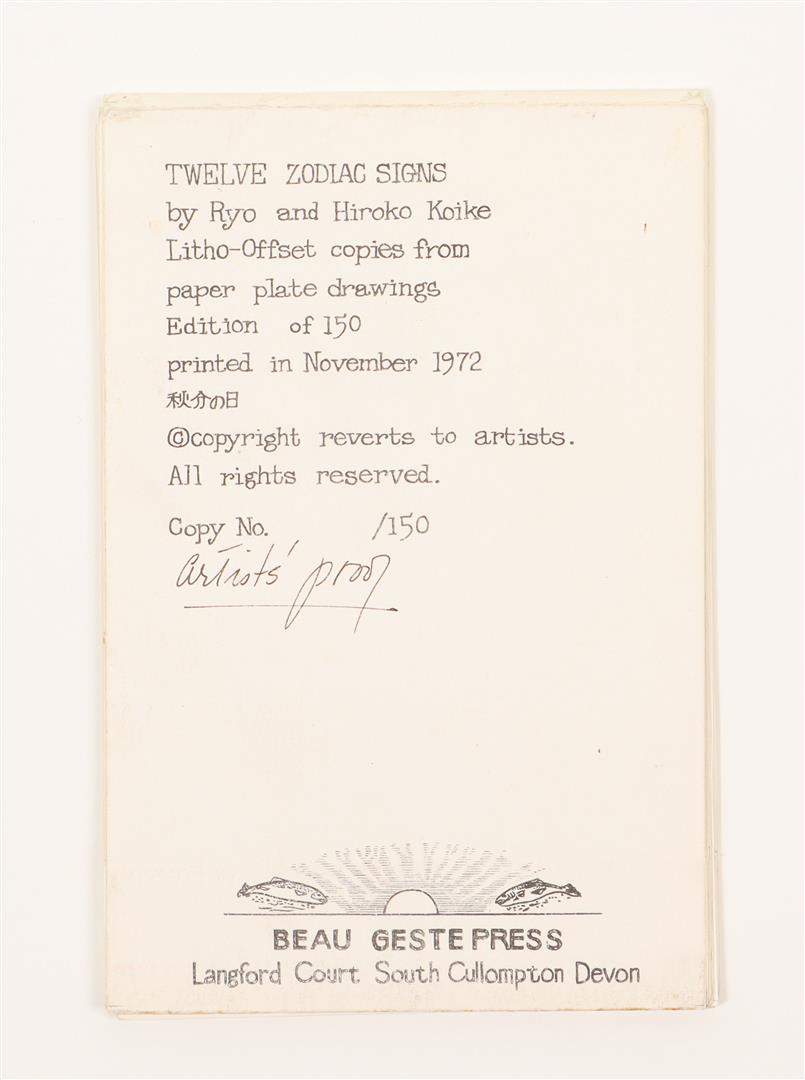 TWELVE ZODIAC SIGNS
by Ryo and Hiroko Koike
Litho-Offset copies from
paper plate drawings
Edition of 150
printed in November 1972
秋分の日
©copyright reverts to artists.
All rights reserved.
Copy No. /150
artists' proof
BEAU GESTE PRESS
Langford Court South Cullompton Devon